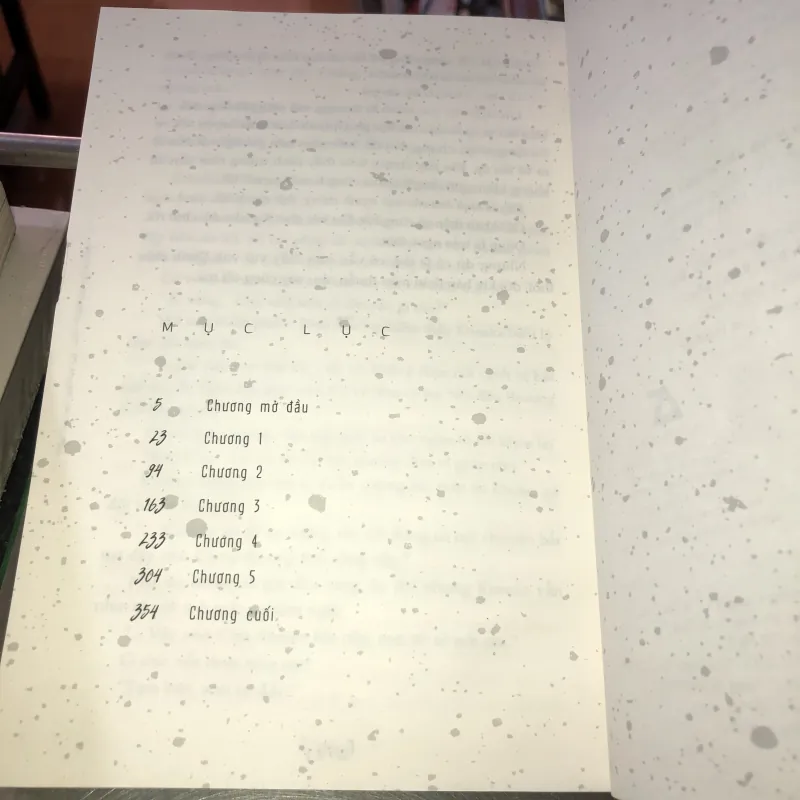 MỤC LỤC
5 Chương mở đầu
23 Chương 1
94 Chương 2
163 Chương 3
233 Chương 4
304 Chương 5
354 Chương cuối